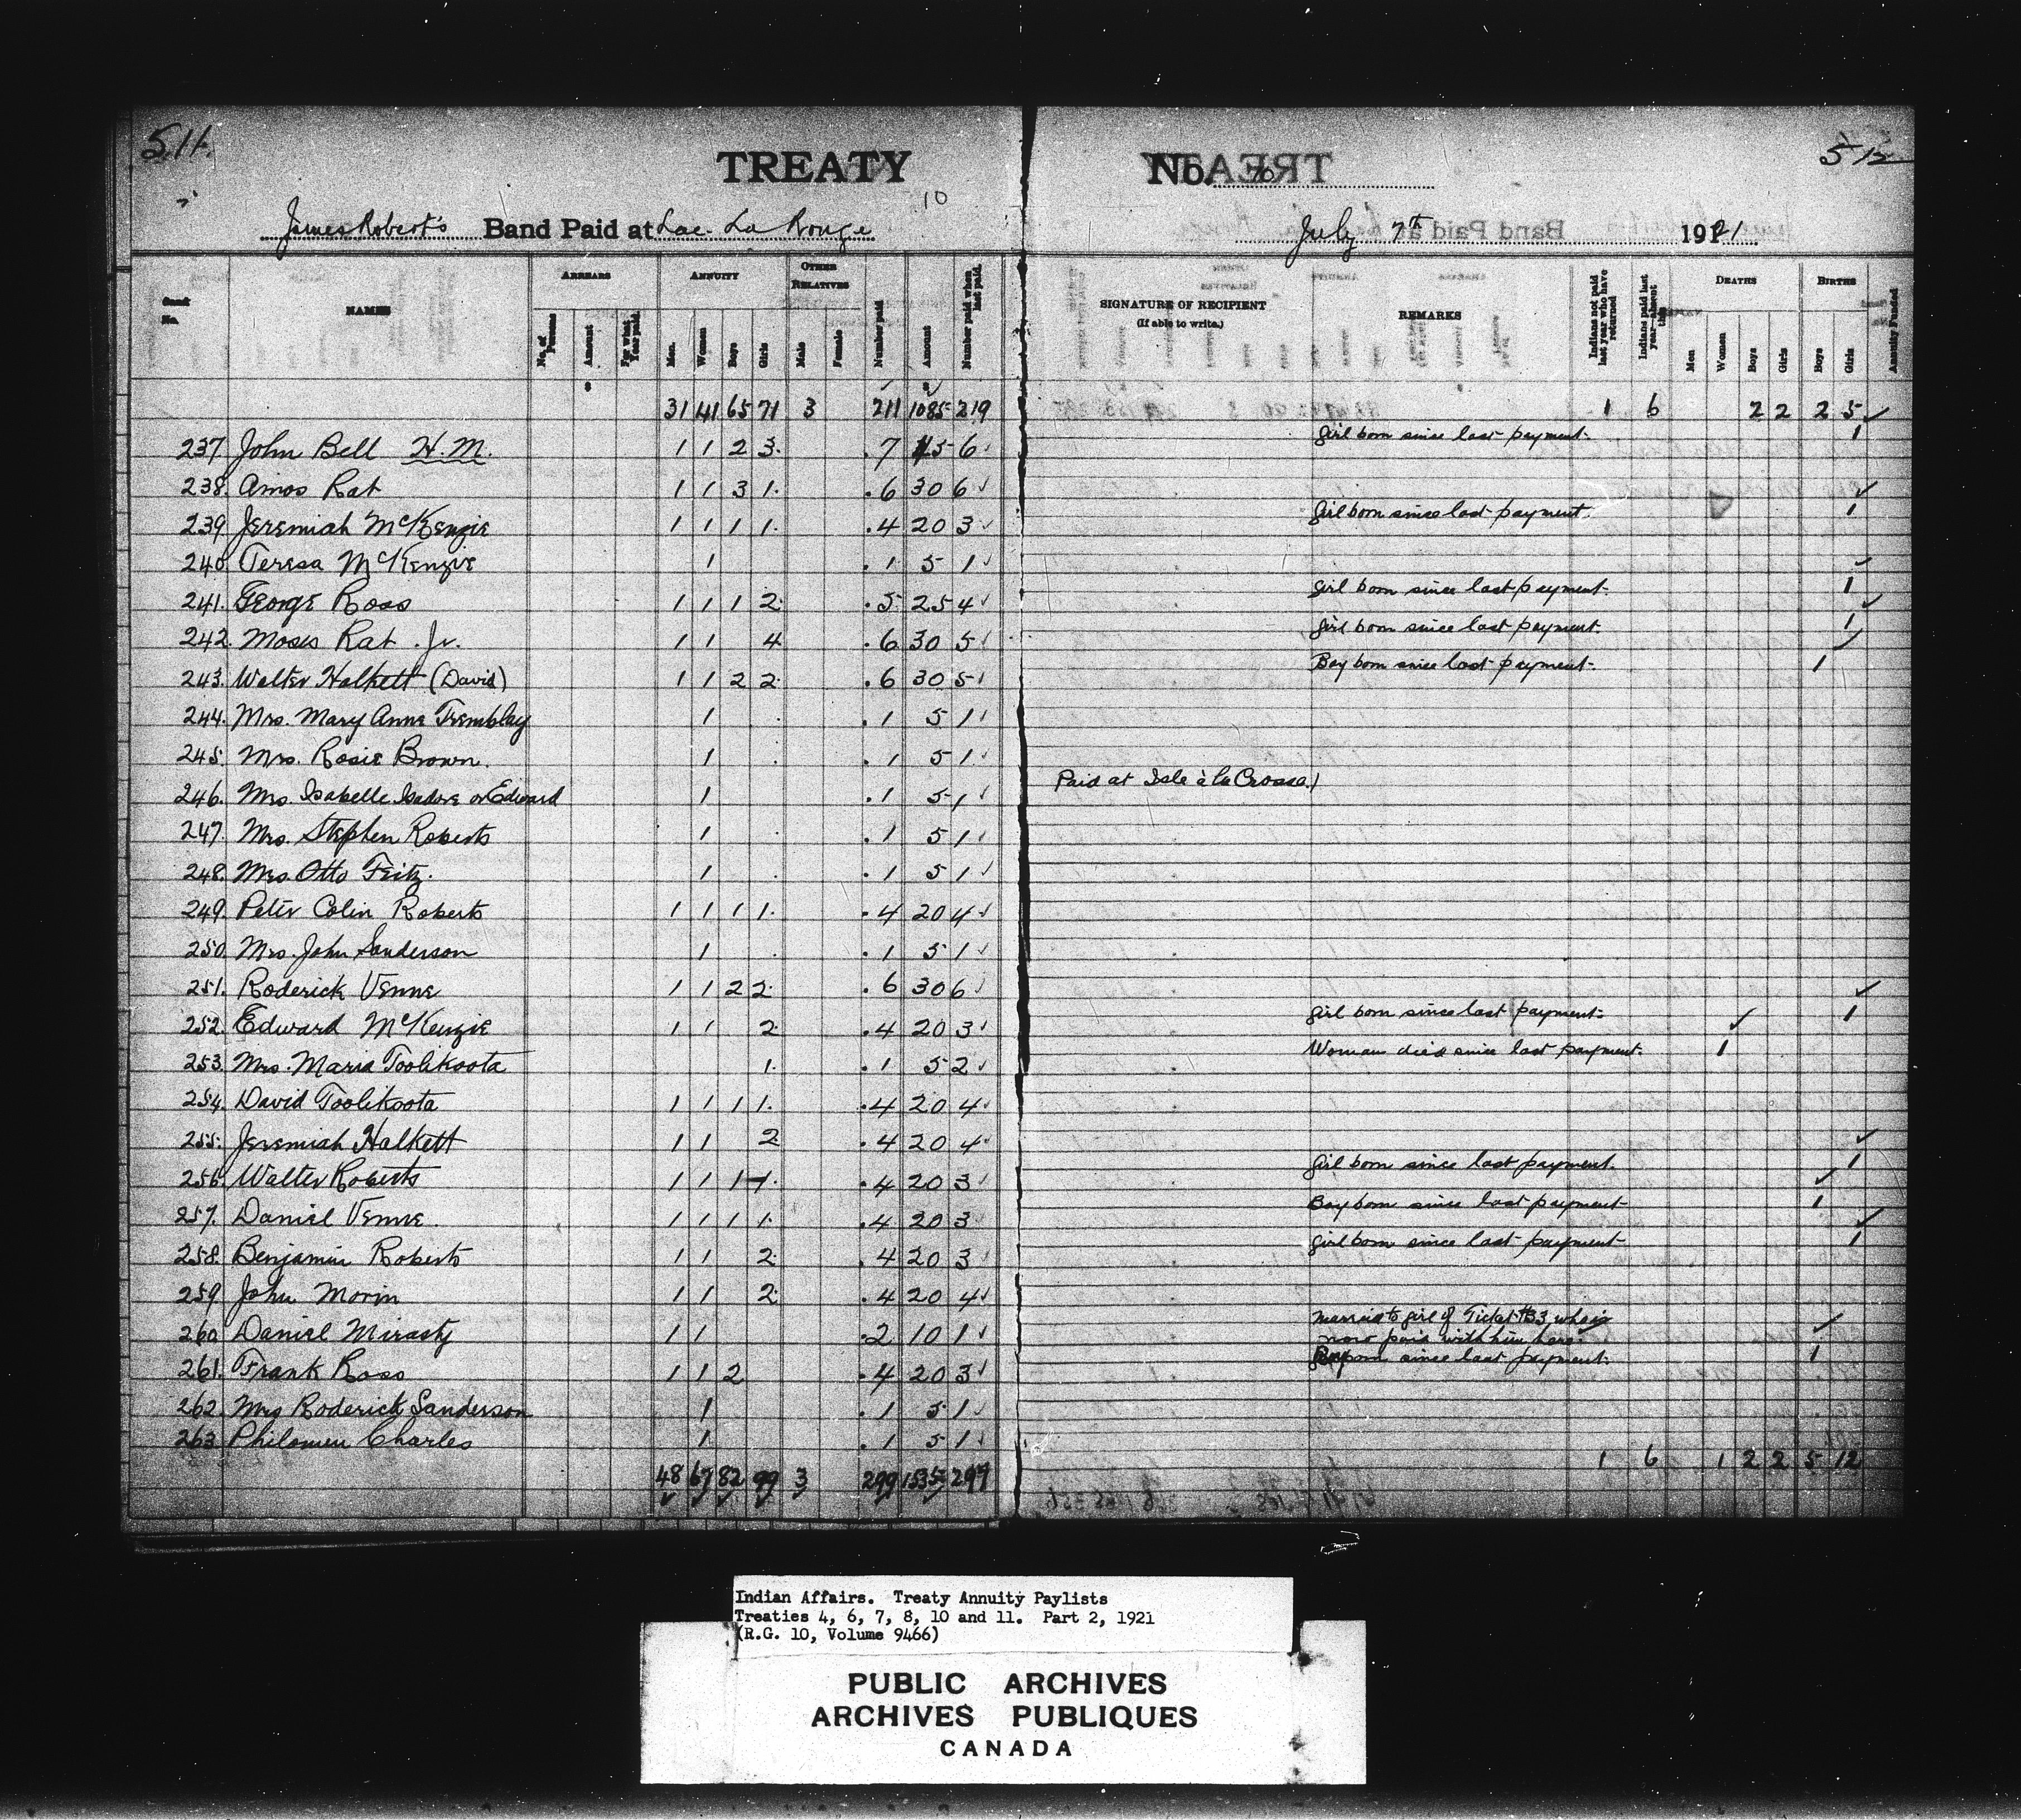 511.
512
TREATY No. 10
10
James Robert's Band Paid at Lac La Ronge July 7th 1921
NAMES
ARREARS
ANNUITY
OTHER RELATIVES
Number paid
Amount
Number paid when last paid.
SIGNATURE OF RECIPIENT
(If able to write.)
REMARKS
Indians not paid last year who have returned
Indians paid last year—absent this
DEATHS
BIRTHS
Annuity Funded
No.
No. of Persons
Amount
For what Year paid.
Men.
Women
Boys
Girls
Male
Female
Men
Women
Boys
Girls
Boys
Girls
31 41 65 71 3 211 1085 219 1 6 2 2 2 5
237. John Bell H.M. 1 1 2 3. 7 15 6 Girl born since last payment. 1
238. Amos Rat 1 1 3 1. 6 30 6
239. Jeremiah McKenzie 1 1 1 1. 4 20 3 Girl born since last payment. 1
240. Teresa McKenzie 1 1 5 1
241. George Ross 1 1 1 2 5 25 4 Girl born since last payment. 1
242. Moses Rat Jr. 1 1 4 6 30 5 Girl born since last payment. 1
243. Walter Halkett (David) 1 1 2 2 6 30 5 Boy born since last payment. 1
244. Mrs. Mary Anne Tremblay 1 1 5 1
245. Mrs. Rosie Brown. 1 1 5 1
246. Mrs. Isabelle Isadore or Edward 1 1 5 1 Paid at Isle à la Crosse.)
247. Mrs. Stephen Roberts 1 1 5 1
248. Mrs Otto Fritz. 1 1 5 1
249. Peter Colin Roberts 1 1 1 1. 4 20 4
250. Mrs. John Sanderson 1 1 5 1
251. Roderick Venne 1 1 2 2 6 30 6
252. Edward McKenzie 1 1 2 4 20 3 Girl born since last payment. 1
253. Mrs. Maria Toolikoota 1. 1 5 2 Woman died since last payment. 1
254. David Toolikoota 1 1 1 1. 4 20 4
255. Jeremiah Halkett 1 1 2 4 20 4
256. Walter Roberts 1 1 1 1. 4 20 3 Girl born since last payment. 1
257. Daniel Venne. 1 1 1 1. 4 20 3 Boy born since last payment 1
258. Benjamin Roberts 1 1 2 4 20 3 Girl born since last payment 1
259. John Morin 1 1 2 4 20 4
260. Daniel Mirasty 1 1 2 10 1 Married to girl of Ticket #33, who is
now paid with him here.
261. Frank Ross 1 1 2 4 20 3 Boy born since last payment. 1
262. Mrs Roderick Sanderson 1 1 5 1
263. Philomen Charles 1 1 5 1
48 67 82 99 3 299 1535 297 1 6 1 2 2 5 12
Indian Affairs. Treaty Annuity Paylists
Treaties 4, 6, 7, 8, 10 and 11. Part 2, 1921
(R.G. 10, Volume 9466)
PUBLIC ARCHIVES
ARCHIVES PUBLIQUES
CANADA